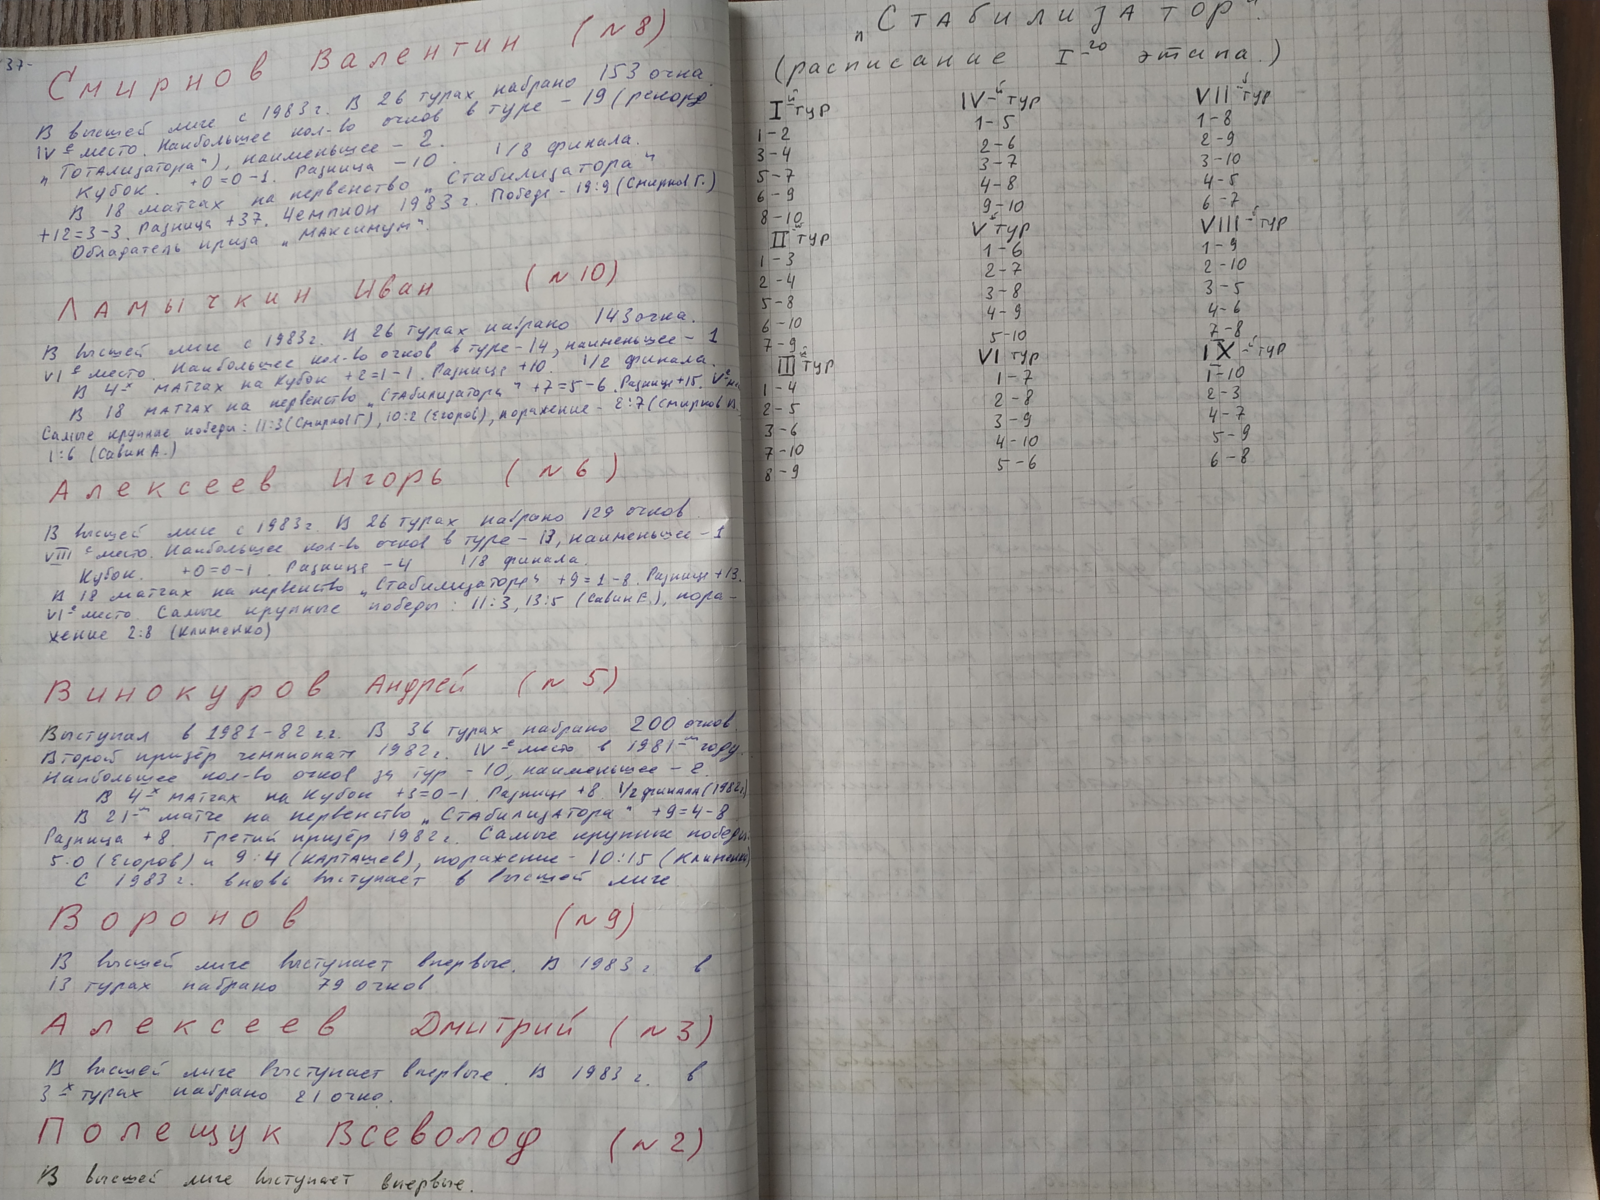 37-
Смирнов Валентин (N8)
В высшей лиге с 1983г. В 26 турах набрано 153 очка.
IV-е место. Наибольшее кол-во очков в туре - 19 (рекорд
"Тотализатора"), наименьшее - 2.
Кубок. +0=0-1. Разница -10. 1/8 финала.
В 18 матчах на первенство "Стабилизатора"
+12=3-3. Разница +37. Чемпион 1983г. Победа - 19:9 (Смирнов Г.)
Обладатель приза "Максимум"
Ламычкин Иван (N10)
В высшей лиге с 1983г. В 26 турах набрано 143 очка.
VI-е место. Наибольшее кол-во очков в туре - 14, наименьшее - 1
В 4-х матчах на Кубок +2=1-1. Разница +10. 1/2 финала.
В 18 матчах на первенство "Стабилизатора" +7=5-6. Разница +15. V-е м.
Самые крупные победы: 11:3 (Смирнов Г.), 10:2 (Егоров), поражение - 2:7 (Смирнов В.
1:6 (Савин А.)
Алексеев Игорь (N6)
В высшей лиге с 1983г. В 26 турах набрано 129 очков
VIII-е место. Наибольшее кол-во очков в туре - 13, наименьшее - 1
Кубок. +0=0-1. Разница -4 1/8 финала.
В 18 матчах на первенство "Стабилизатора" +9=1-8. Разница +13.
VI-е место. Самые крупные победы: 11:3, 13:5 (Савин Е.), пора-
жение 2:8 (Клименко)
Винокуров Андрей (N5)
Выступал в 1981-82 гг. В 36 турах набрано 200 очков
Второй призёр чемпионата 1982г. IV-е место в 1981-м году.
Наибольшее кол-во очков за тур - 10, наименьшее - 2.
В 4-х матчах на Кубок +3=0-1. Разница +8. 1/2 финала (1982г)
В 21-м матче на первенство "Стабилизатора" +9=4-8
Разница +8. Третий призёр 1982г. Самые крупные победы
5:0 (Егоров) и 9:4 (Карташев), поражение - 10:15 (Клименко)
С 1983г. вновь выступает в высшей лиге
Воронов (N9)
В высшей лиге выступает впервые. В 1983г. в
13 турах набрано 79 очков
Алексеев Дмитрий (N3)
В высшей лиге выступает впервые. В 1983г. в
3-х турах набрано 21 очко.
Полещук Всеволод (N2)
В высшей лиге выступает впервые.
"Стабилизатор".
(расписание I-го этапа.)
I-й тур
1-2
3-4
5-7
6-9
8-10
II-й тур
1-3
2-4
5-8
6-10
7-9
III-й тур
1-4
2-5
3-6
7-10
8-9
IV-й тур
1-5
2-6
3-7
4-8
9-10
V-й тур
1-6
2-7
3-8
4-9
5-10
VI тур
1-7
2-8
3-9
4-10
5-6
VII-й тур
1-8
2-9
3-10
4-5
6-7
VIII-й тур
1-9
2-10
3-5
4-6
7-8
IX-й тур
1-10
2-3
4-7
5-9
6-8